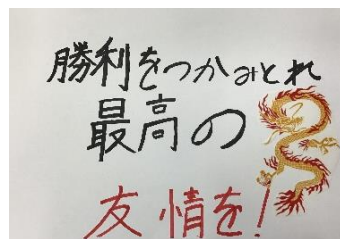 勝利をつかみとれ
最高の
友情を!